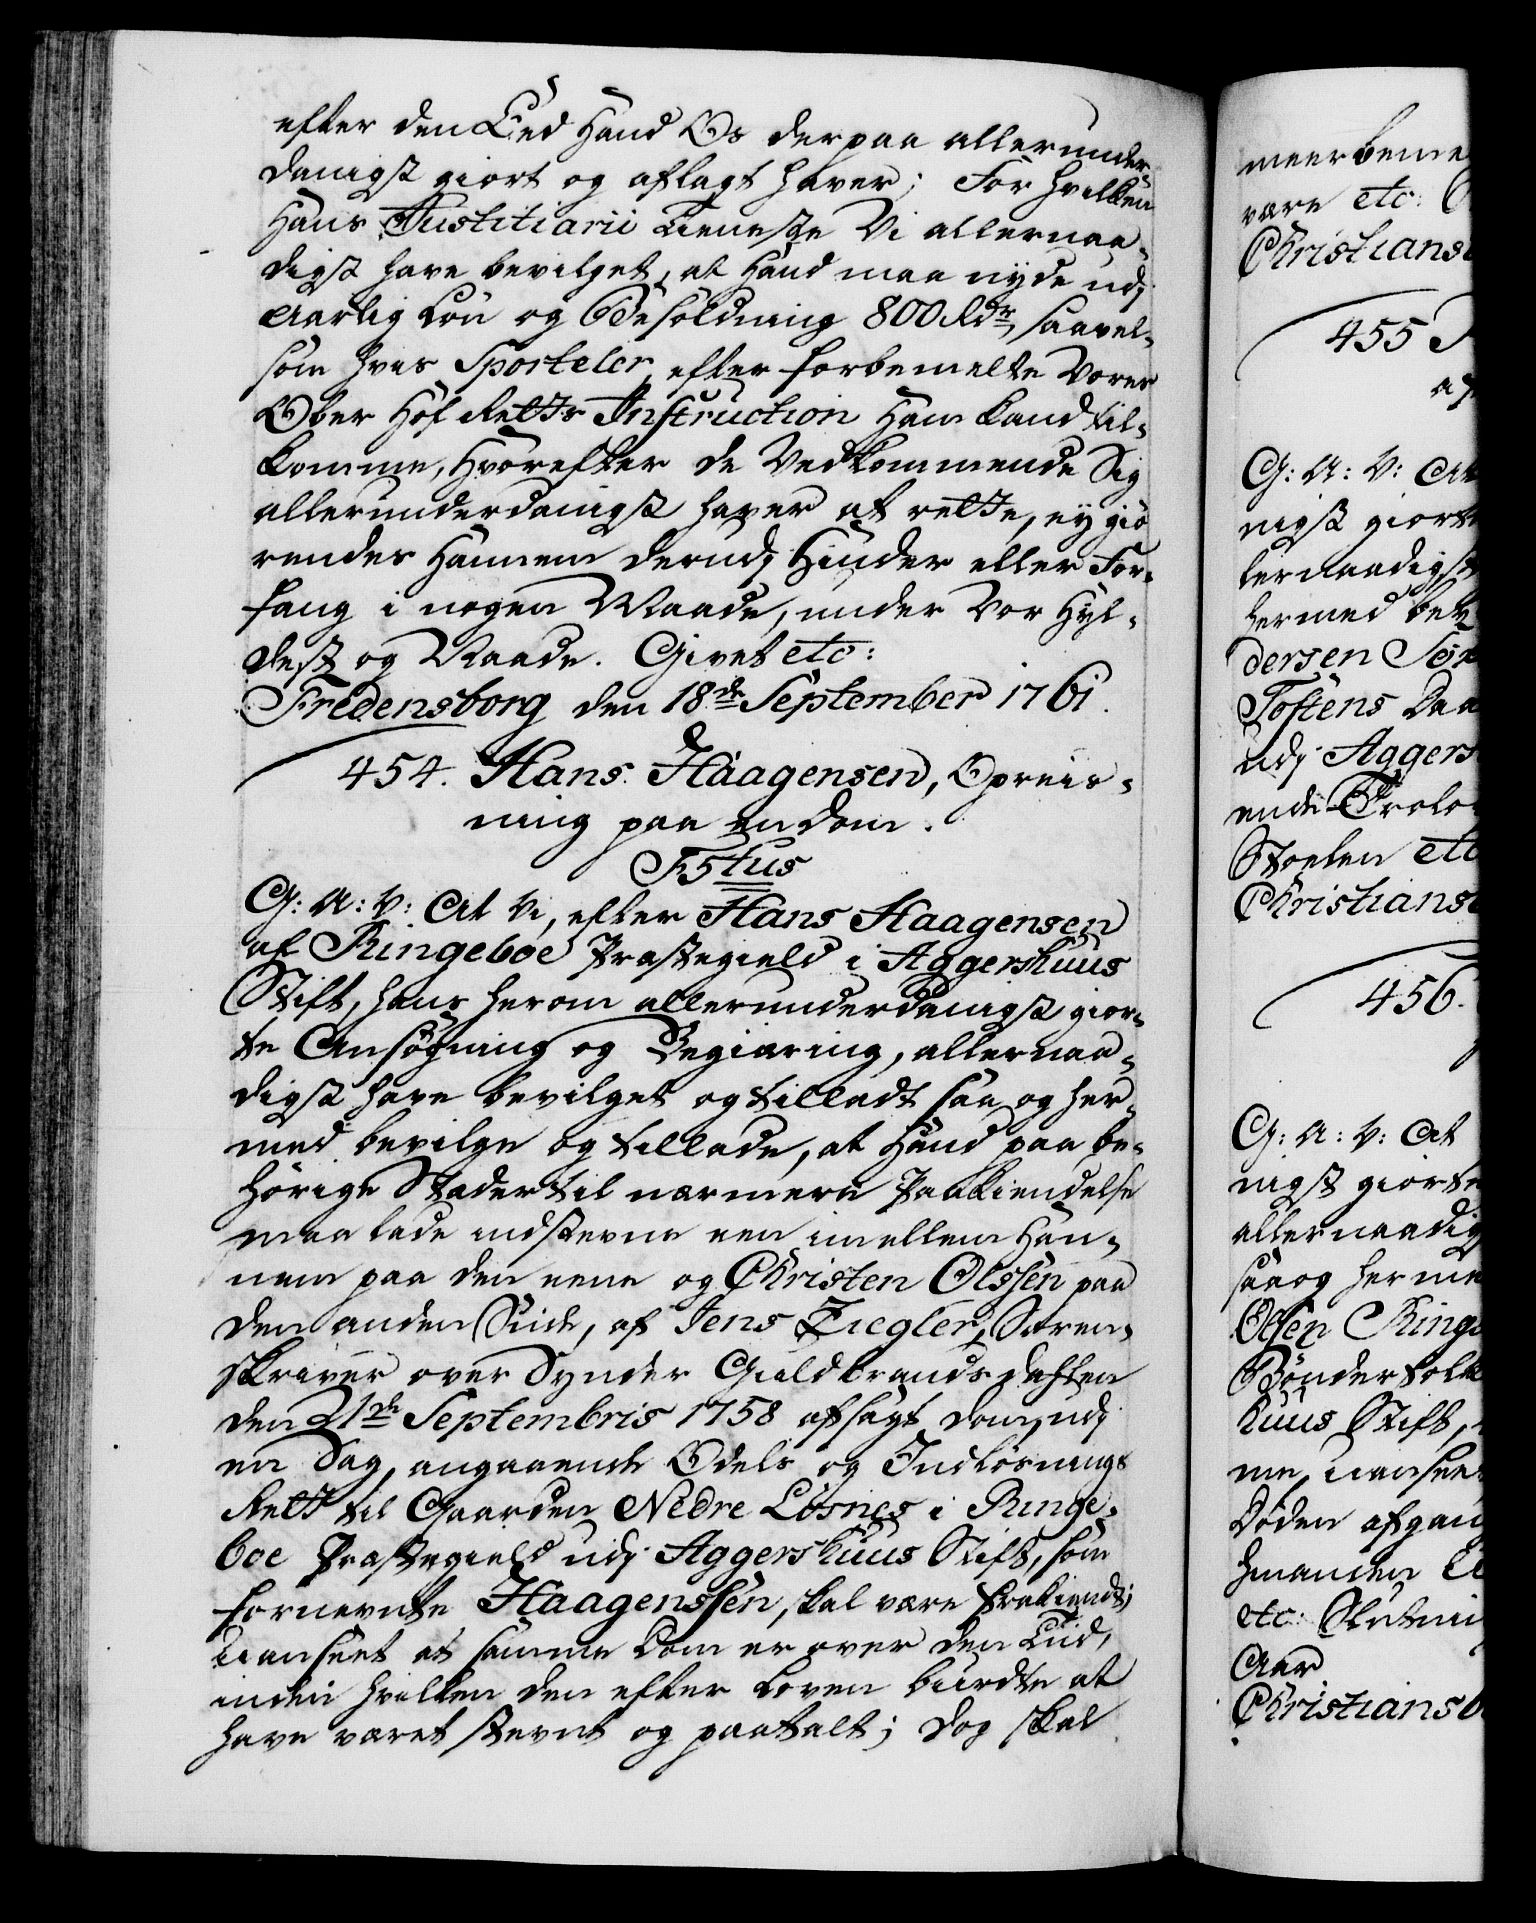 efter den Eed Hand Os derpaa allerunder-
danigst giort og aflagt haver; For hvilken
Hans Justitiarii Tieneste Vi allernaa-
digst have bevilget, at Hand maa nyde udj
Aarlig Løn og Besoldning 800 Rdr, saavel-
som hvis Sporteler, efter forbemelte Vores
Ober Hof Retts Instruction Ham kand til-
komme, Hvorefter de Vedkommende Sig
allerunderdanigst haver at rette, ey giø
rendes Hannem derudj Hinder eller For-
fang i nogen Maade, under Vor Hyl-
dest og Naade. Givet etc:
Fredensborg den 18de September 1761.
454. Hans Haagensen, Opreis-
ning paa en Dom.
F5tus
G: A: V: At Vi, efter Hans Haagensen
af Ringeboe Præstegield i Aggershuus
Stift, hans herom allerunderdanigst gior-
te Ansøgning og Begiæring, allernaa-
digst have bevilget og tilladt, saa og her-
med bevilge og tillade, at Hand paa be-
hørige Stæder til nærmere Paakiendelse
maa lade indstevne een imellem Han-
nem paa den eene og Christen Olssen paa
den anden Siide, af Jens Ziegler, Soren-
skriver over Synder Guldbrandsdahlen
den 21de Septembris 1758 afsagt Dom, udj
en Sag, angaaende Odels og Indløsnings
Rett til Gaarden Nedre Løsnes i Ringe-
boe Præstegield udj Aggershuus Stift, som
fornevnte Haagenssen, skal være frakiendt;
Uanseet at samme Dom er over den Tiid,
inden hvilken den efter Loven burdte at
have været stevnt og paatalt; dog skal
meerbeme
være etc:
Christians
455
G: A: V: At
nigst giorte
lernaadigst
hermed bev
dersen
Toftens Daa
udj Aggers
ende Trolo
Stoelen etc
Christians
456.
G: A: V: At
nigst giorte
allernaadig
saa og herme
Olsen Ring
Bønderfolk
huus Stift,
me, uansee
Døden afgan
hmanden
etc:
Aar
Christiansb